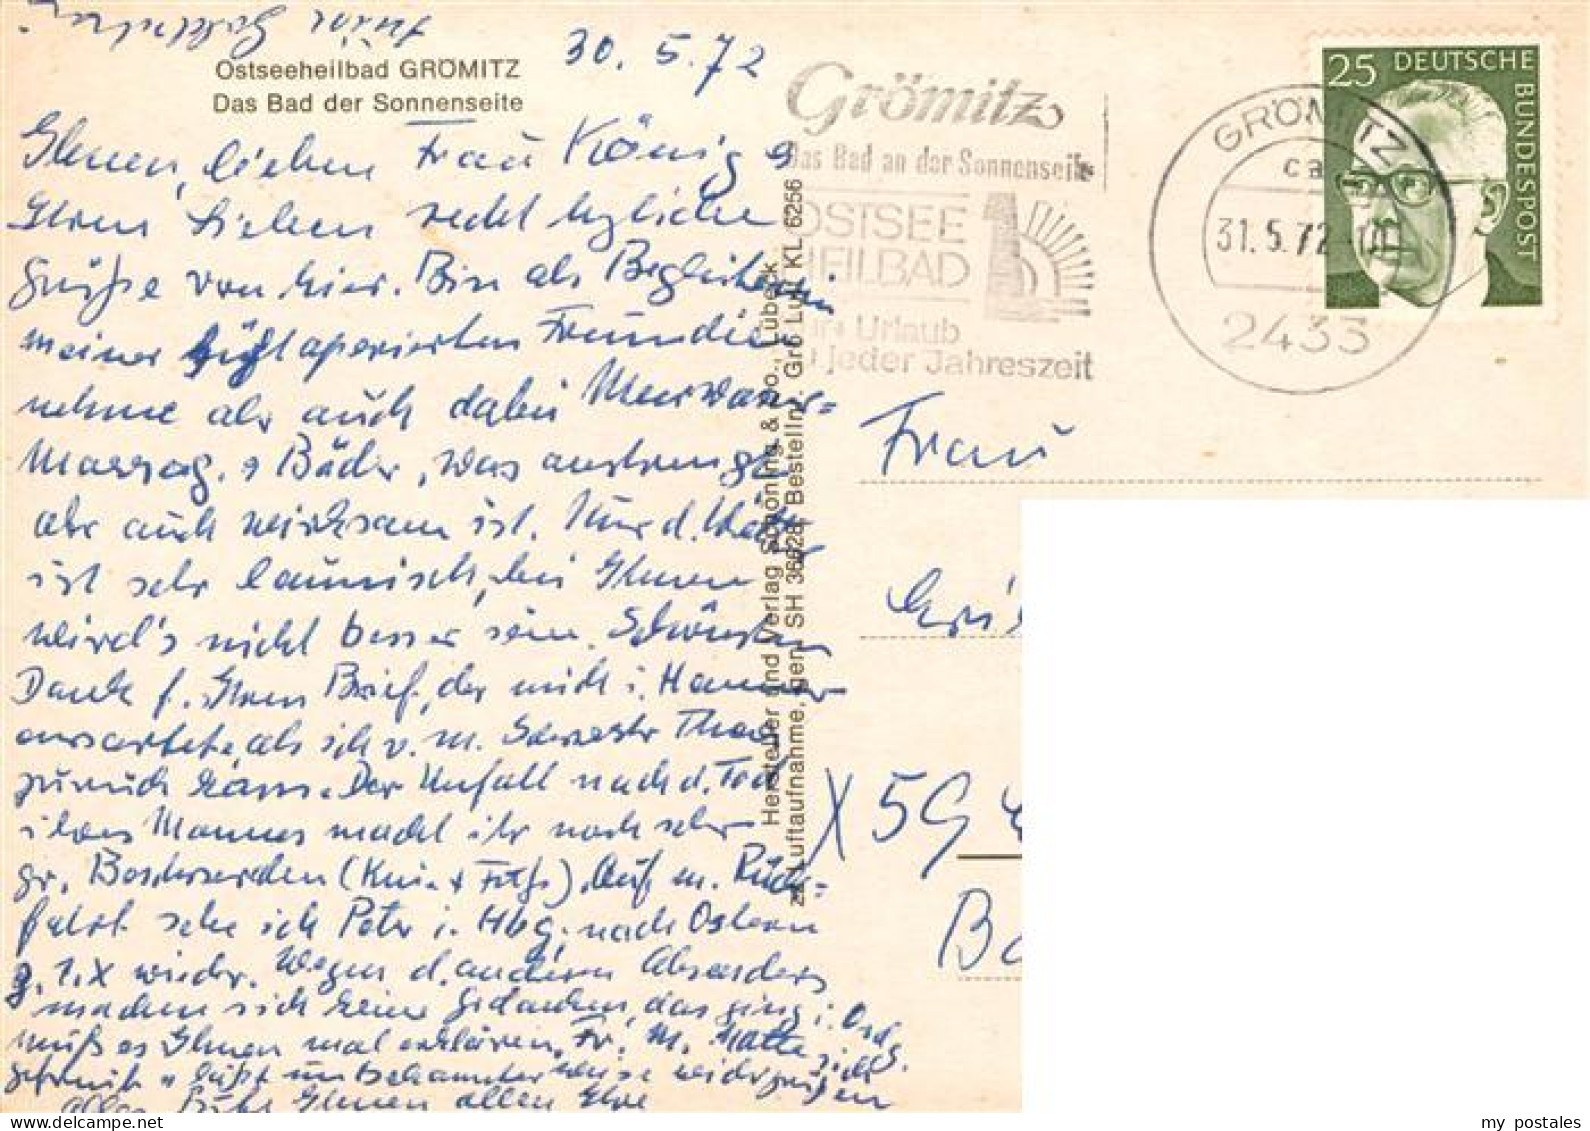 Ostseeheilbad GRÖMITZ
Das Bad der Sonnenseite
30.5.72
Ihnen, lieben Frau König u
Ihren Lieben recht herzliche
Grüße von hier. Bin als Begleiterin
meiner hüftoperierten Freundin
nehme aber auch dabei Meerwasser=
Massag. u Bäder, was anstrengt
aber auch wirksam ist. Nur d. Wetter
ist sehr launisch, bei Ihnen
wird's nicht besser sein. Schönsten
Dank f. Ihren Brief, der mich i. Hannover
erwartete, als ich v. m. Schwester
zurück kam. Der Unfall nach d. Tod
ihres Mannes macht ihr noch sehr
gr. Beschwerden (Knie + Füße). Auf m. Rück=
fahrt sehe ich Peter i. Hbg, nach Ostern
z. 1. x wieder. Wegen d. anderen Absenders
machen sich keine Gedanken, das ging i. Ord.
muß es Ihnen mal erklären. Fr. M. hatte sich s.
gefreut u läßt unbekannterweise wiedergrüßen
alles Gute Ihnen allen Ihre
Hersteller und Verlag Schöning & Co., Lübeck
Luftaufnahme, gen. SH 36628, Bestelln. Grö Luft KL 6256
Grömitz
Das Bad an der Sonnenseite
OSTSEE
HEILBAD
Urlaub
jeder Jahreszeit
GRÖMITZ
ca
31.5.72
2433
25 DEUTSCHE
BUNDESPOST
Frau
X 59
my postales